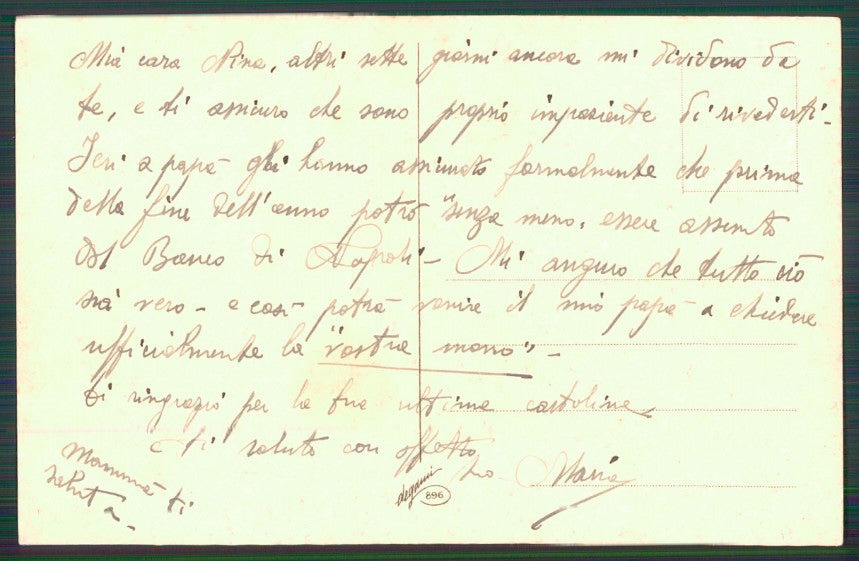 Mia cara Nina, altri sette giorni ancora mi dividono da
te, e ti assicuro che sono proprio impaziente di rivederti -
Ieri a papà gli hanno assicurato formalmente che prima
della fine dell'anno potrò "senza meno" essere assunto
dal Banco di Napoli - Mi auguro che tutto ciò
sia vero - e così potrà venire il mio papà a chiedere
ufficialmente la "vostra mano" -
ti ringrazio per la tua ultima cartolina
e ti saluto con affetto
tuo Mario
Mammà ti
saluta -
degami
896